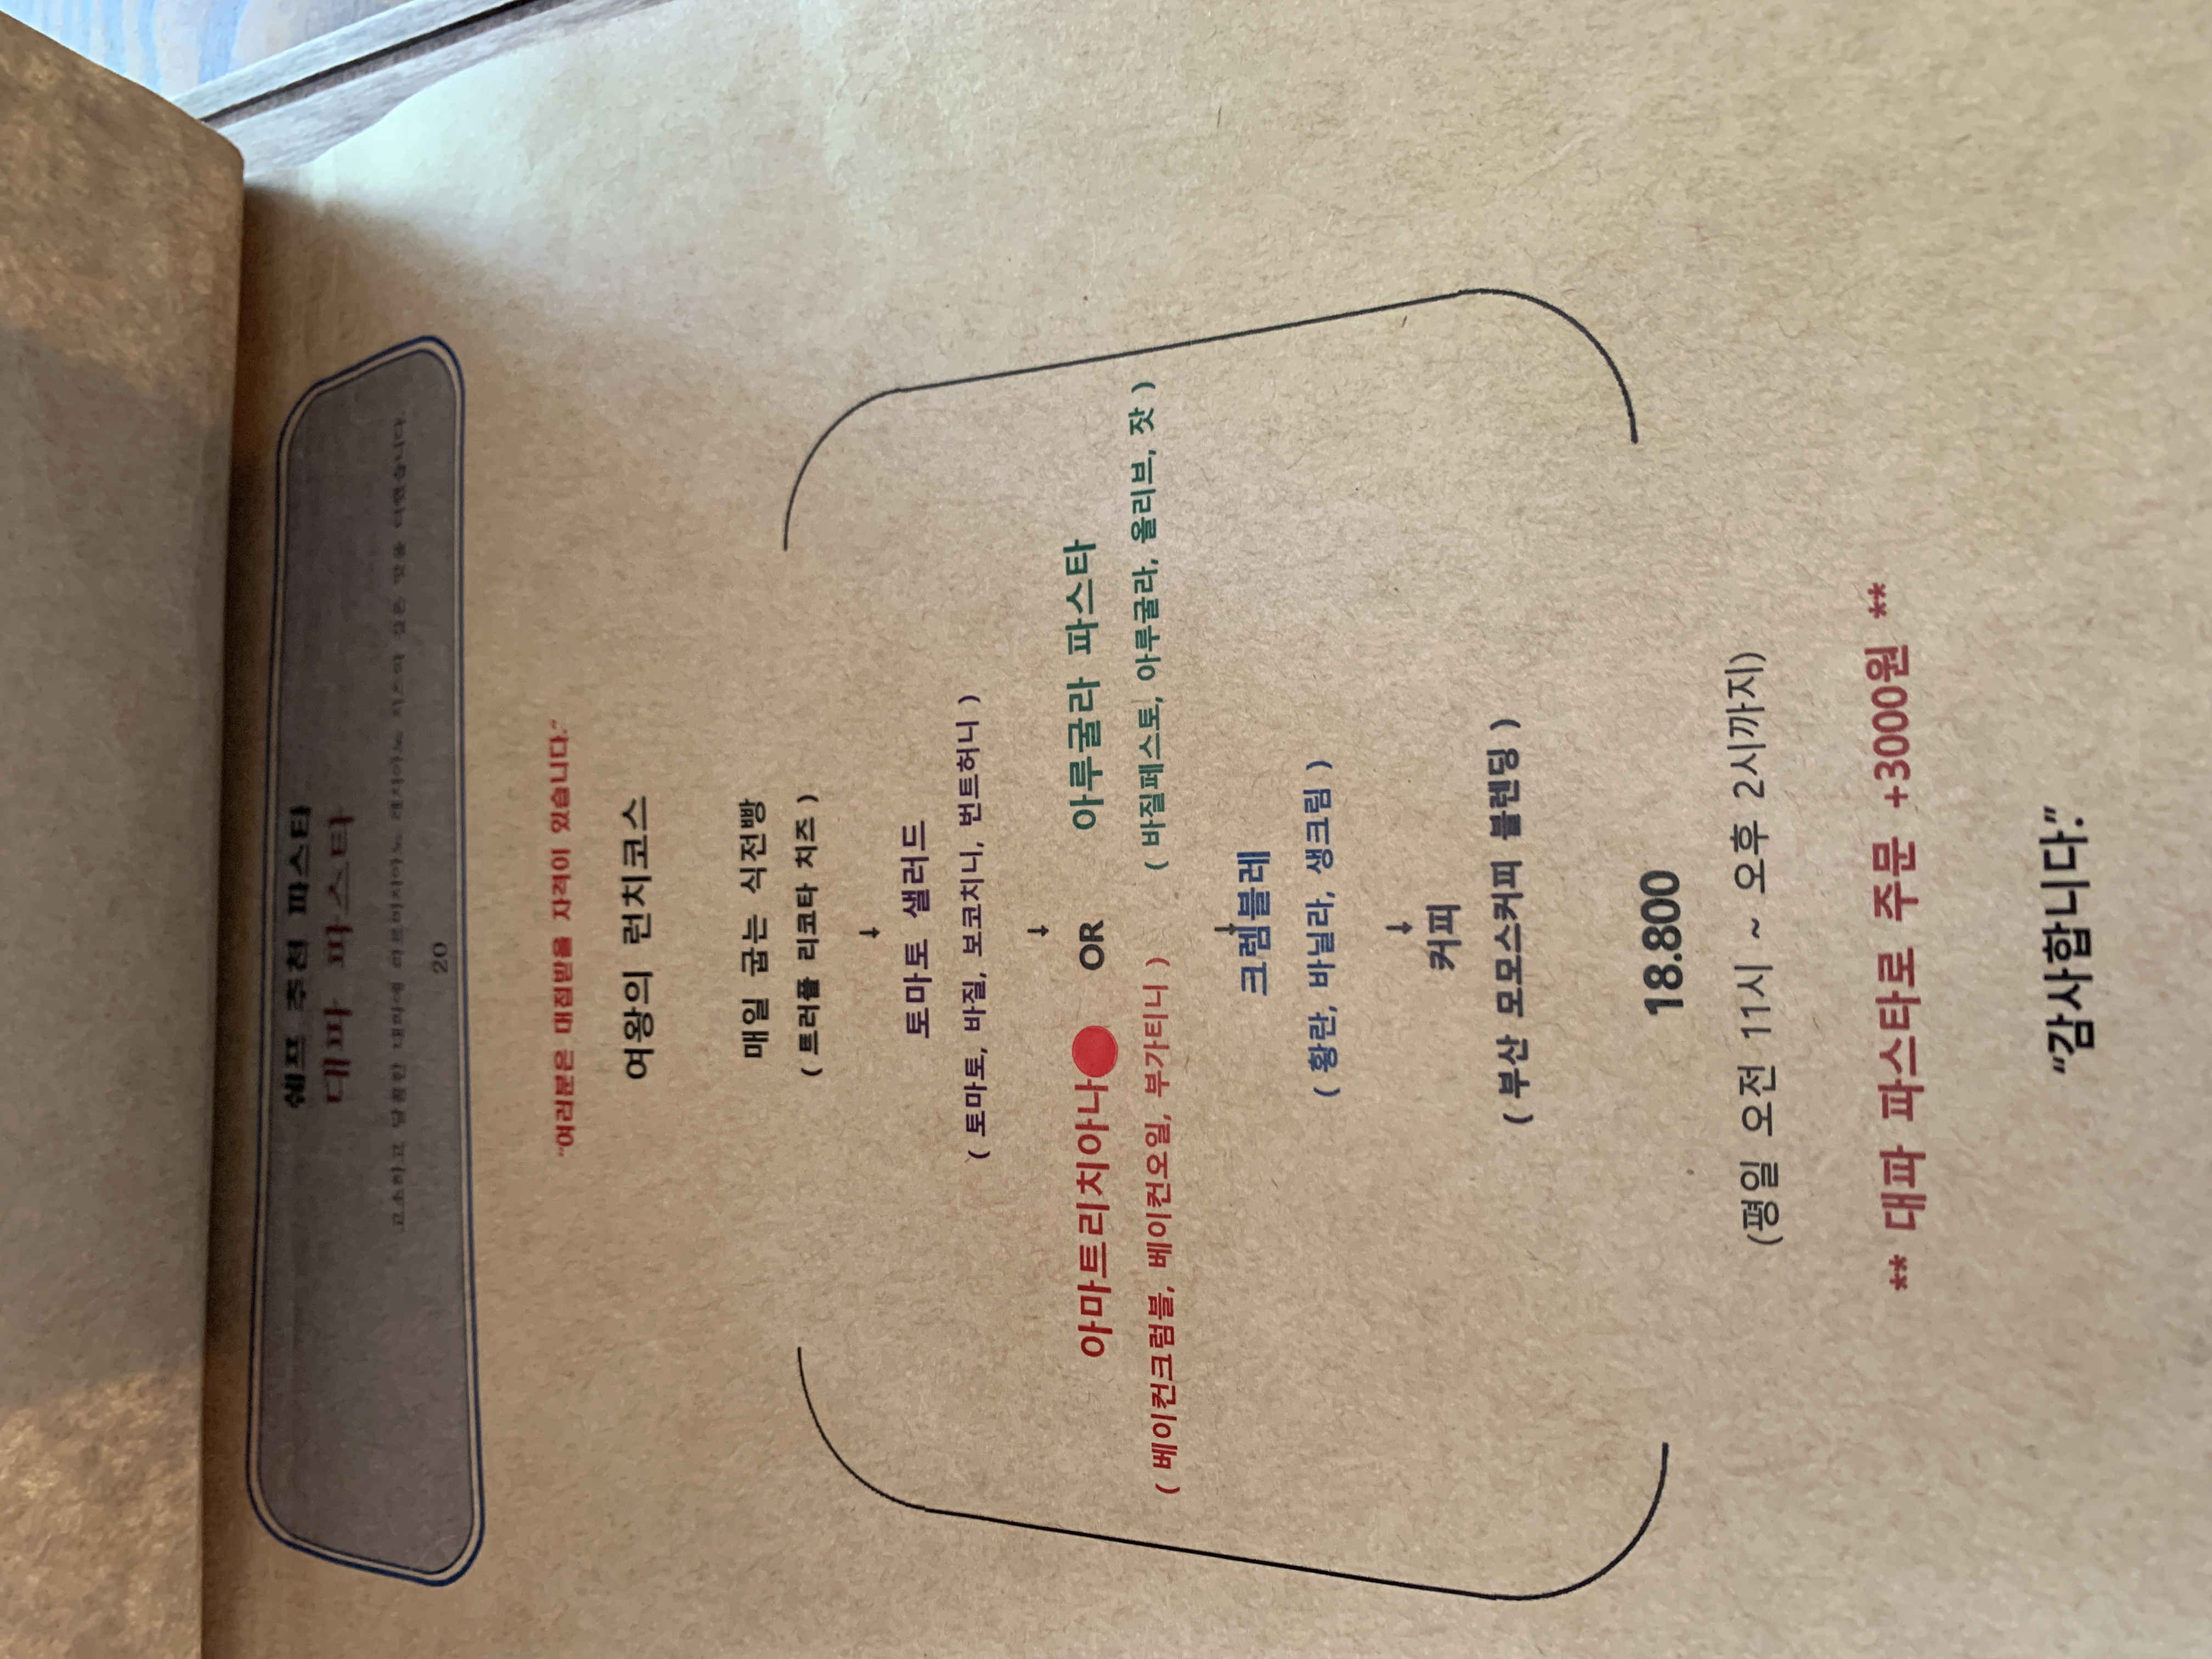 쉐프 추천 파스타
대파 파스타
고소하고 달콤한 대파에 파르미지아노 레지아노 치즈의 깊은 맛을 더했습니다
20
"여러분은 대접받을 자격이 있습니다."
여왕의 런치코스
매일 굽는 식전빵
( 트러플 리코타 치즈 )
↓
토마토 샐러드
( 토마토, 바질, 보코치니, 번트허니 )
↓
아마트리치아나 OR 아루굴라 파스타
( 베이컨크럼블, 베이컨오일, 부가티니 ) ( 바질페스토, 아루굴라, 올리브, 잣 )
↓
크렘블레
( 황란, 바닐라, 생크림 )
↓
커피
( 부산 모모스커피 블렌딩 )
18.800
(평일 오전 11시 ~ 오후 2시까지)
** 대파 파스타로 주문 +3000원 **
"감사합니다."